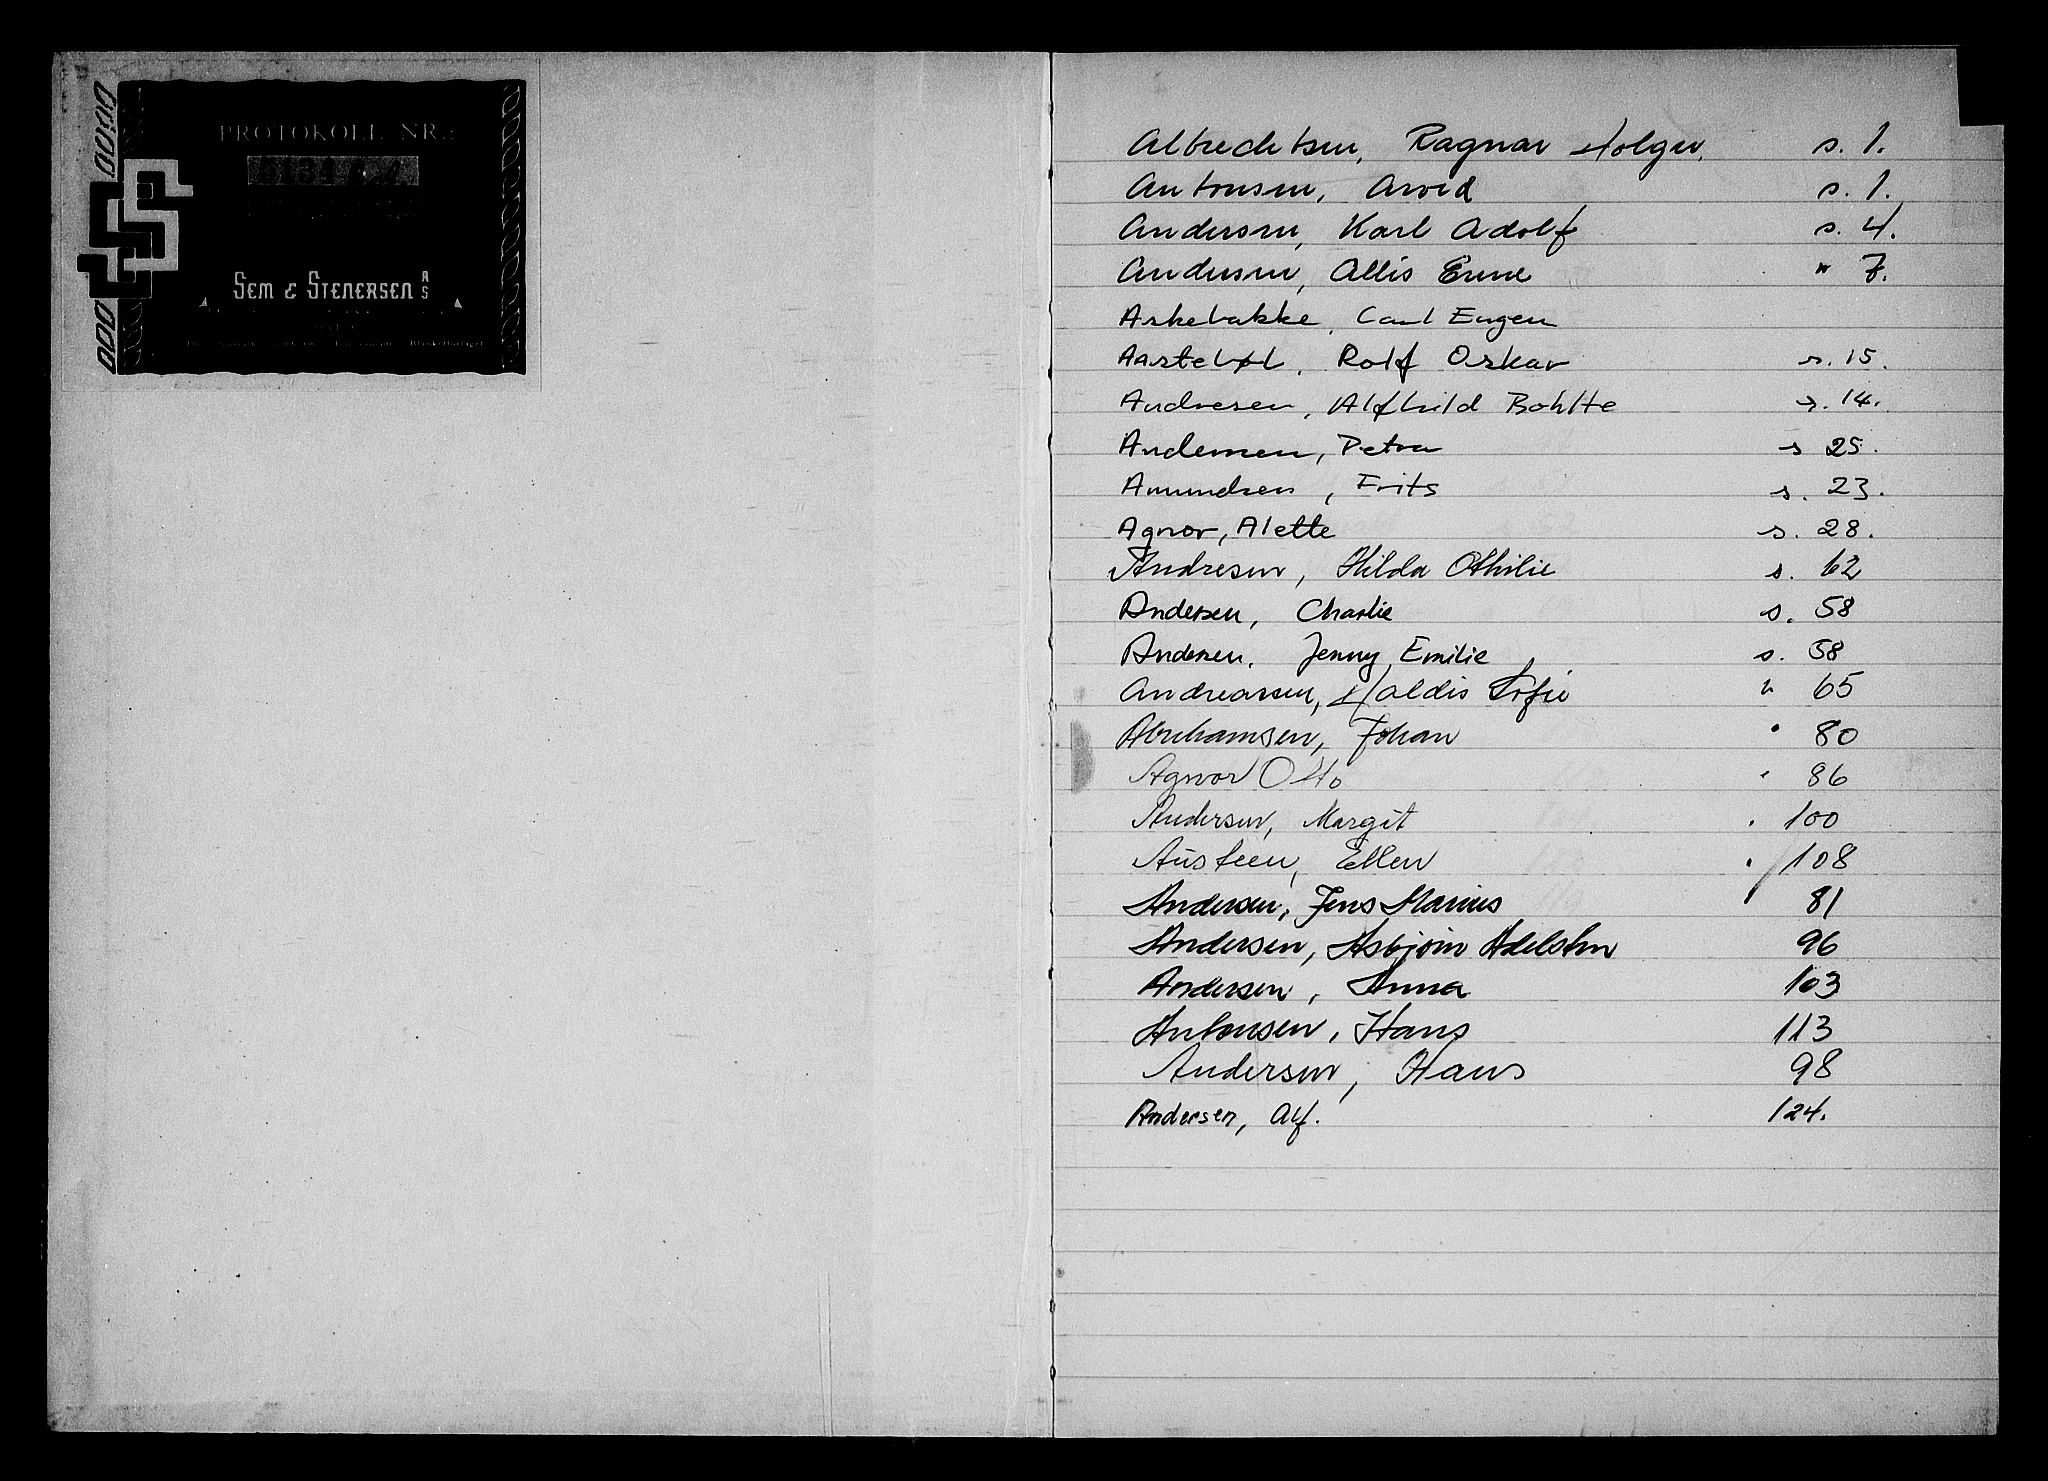 PROTOKOLL NR.:
SEM & STENERSEN A/S
Albrechtsen, Ragnar Holger. s. 1.
Antonsen, Arvid s. 1.
Andersen, Karl Adolf s. 4.
Andersen, Allis Erene " 7.
Askebakke, Carl Eugen
Aasteböl, Rolf Oskar s. 15.
Andresen, Alfhild Bohlte s. 14.
Andersen, Petra s 25.
Amundsen, Frits s. 23.
Agnor, Alette s. 28.
Andresen, Hilda Othilie s. 62
Andersen, Charlie s. 58
Andersen, Jenny Emilie s. 58
Andreassen, Haldis Sofie " 65
Abrahamsen, Johan " 80
Agnor Otto " 86
Andersen, Margit " 100
Austeen, Ellen " 108
Andersen, Jens Marius 81
Andersen, Asbjørn Adelsten 96
Andersen, Anna 103
Antonsen, Hans 113
Andersen, Hans 98
Andersen, Alf. 124.